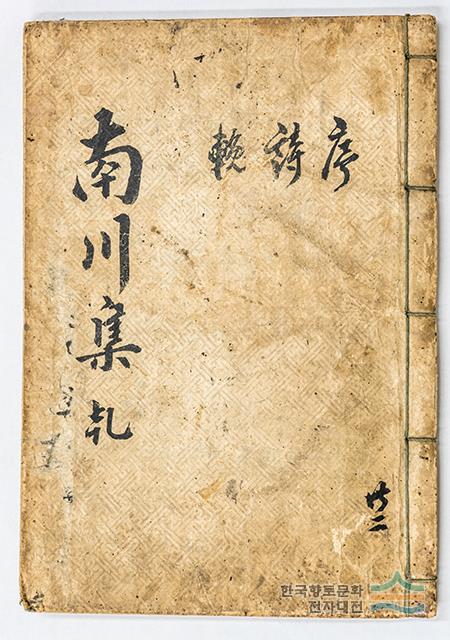 序
詩
輓
共二
南川集 乾
한국향토문화
전자대전